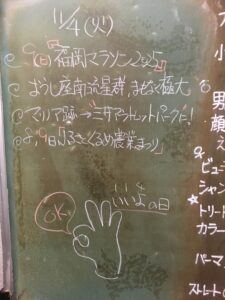 11/4(火)
9(日)「福岡マラソン2025」
おうし座南流星群、まもなく極大
マリノア跡→三井アウトレットパークだ!
8,9日「ふるさとくるめ農業まつり」
いいよの日
OK!
男
顔
シャン
トリート
カラー
パーマ
ストレート